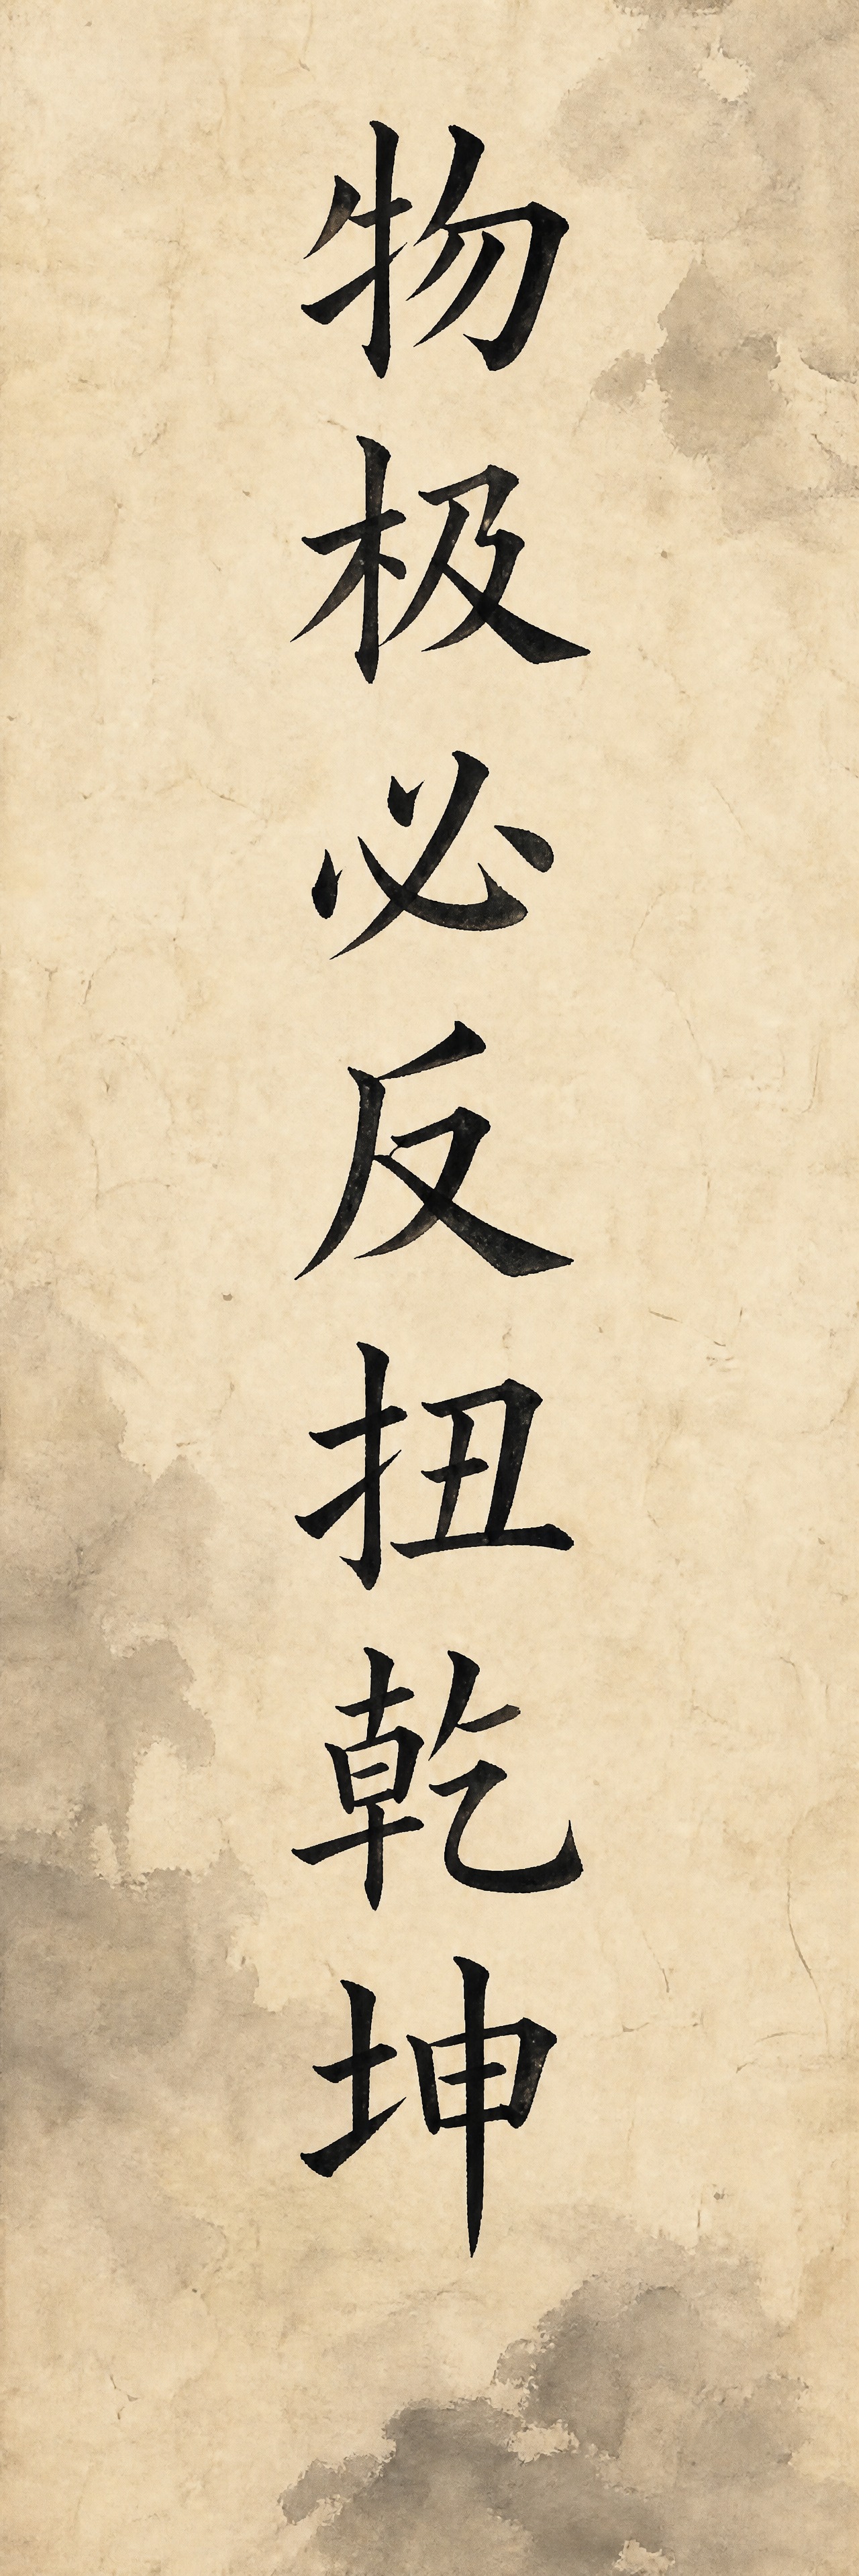 物极必反扭乾坤